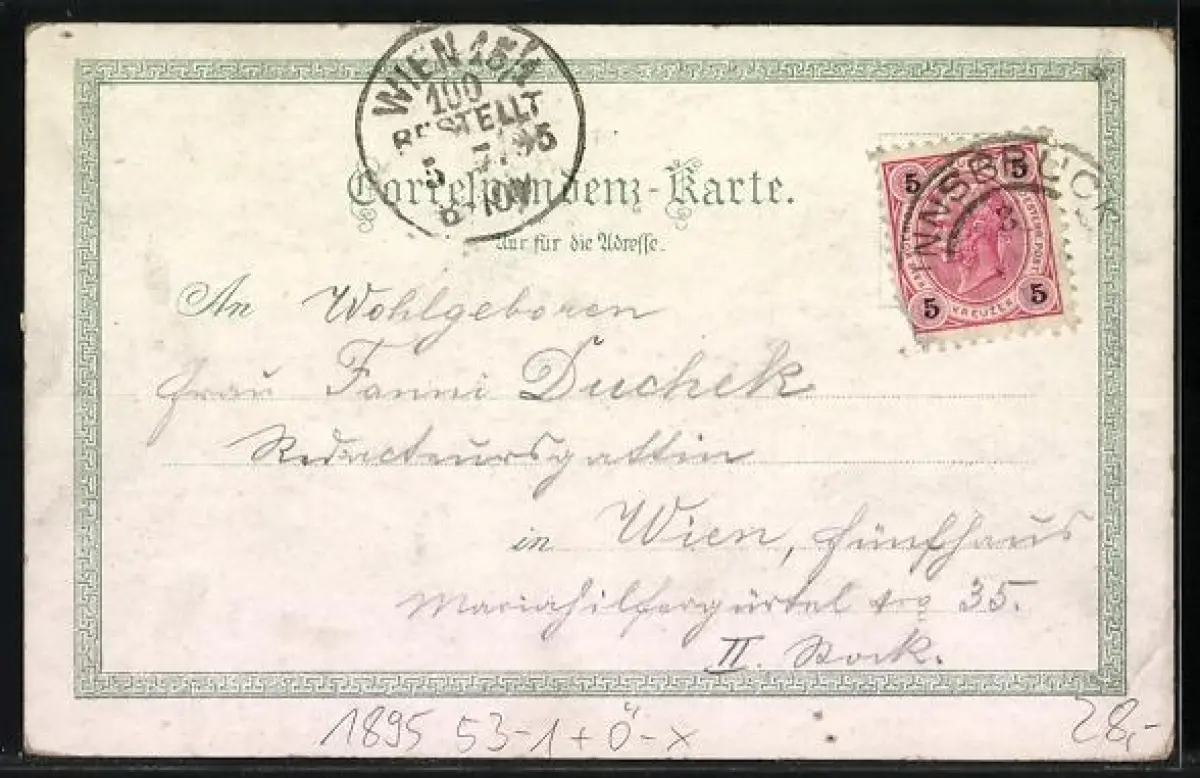 WIEN 15/1
100
BESTELLT
5 5 95
8
INNSBRUCK
5 5
5 5
KREUZER
Correspondenz-Karte.
Nur für die Adresse.
An Wohlgeboren
Frau Fanni Duchek
Redacteursgattin
in Wien, Fünfhaus
Mariahilfergürtel 35.
II. Stock.
1895 53-1+Ö-x
28,-